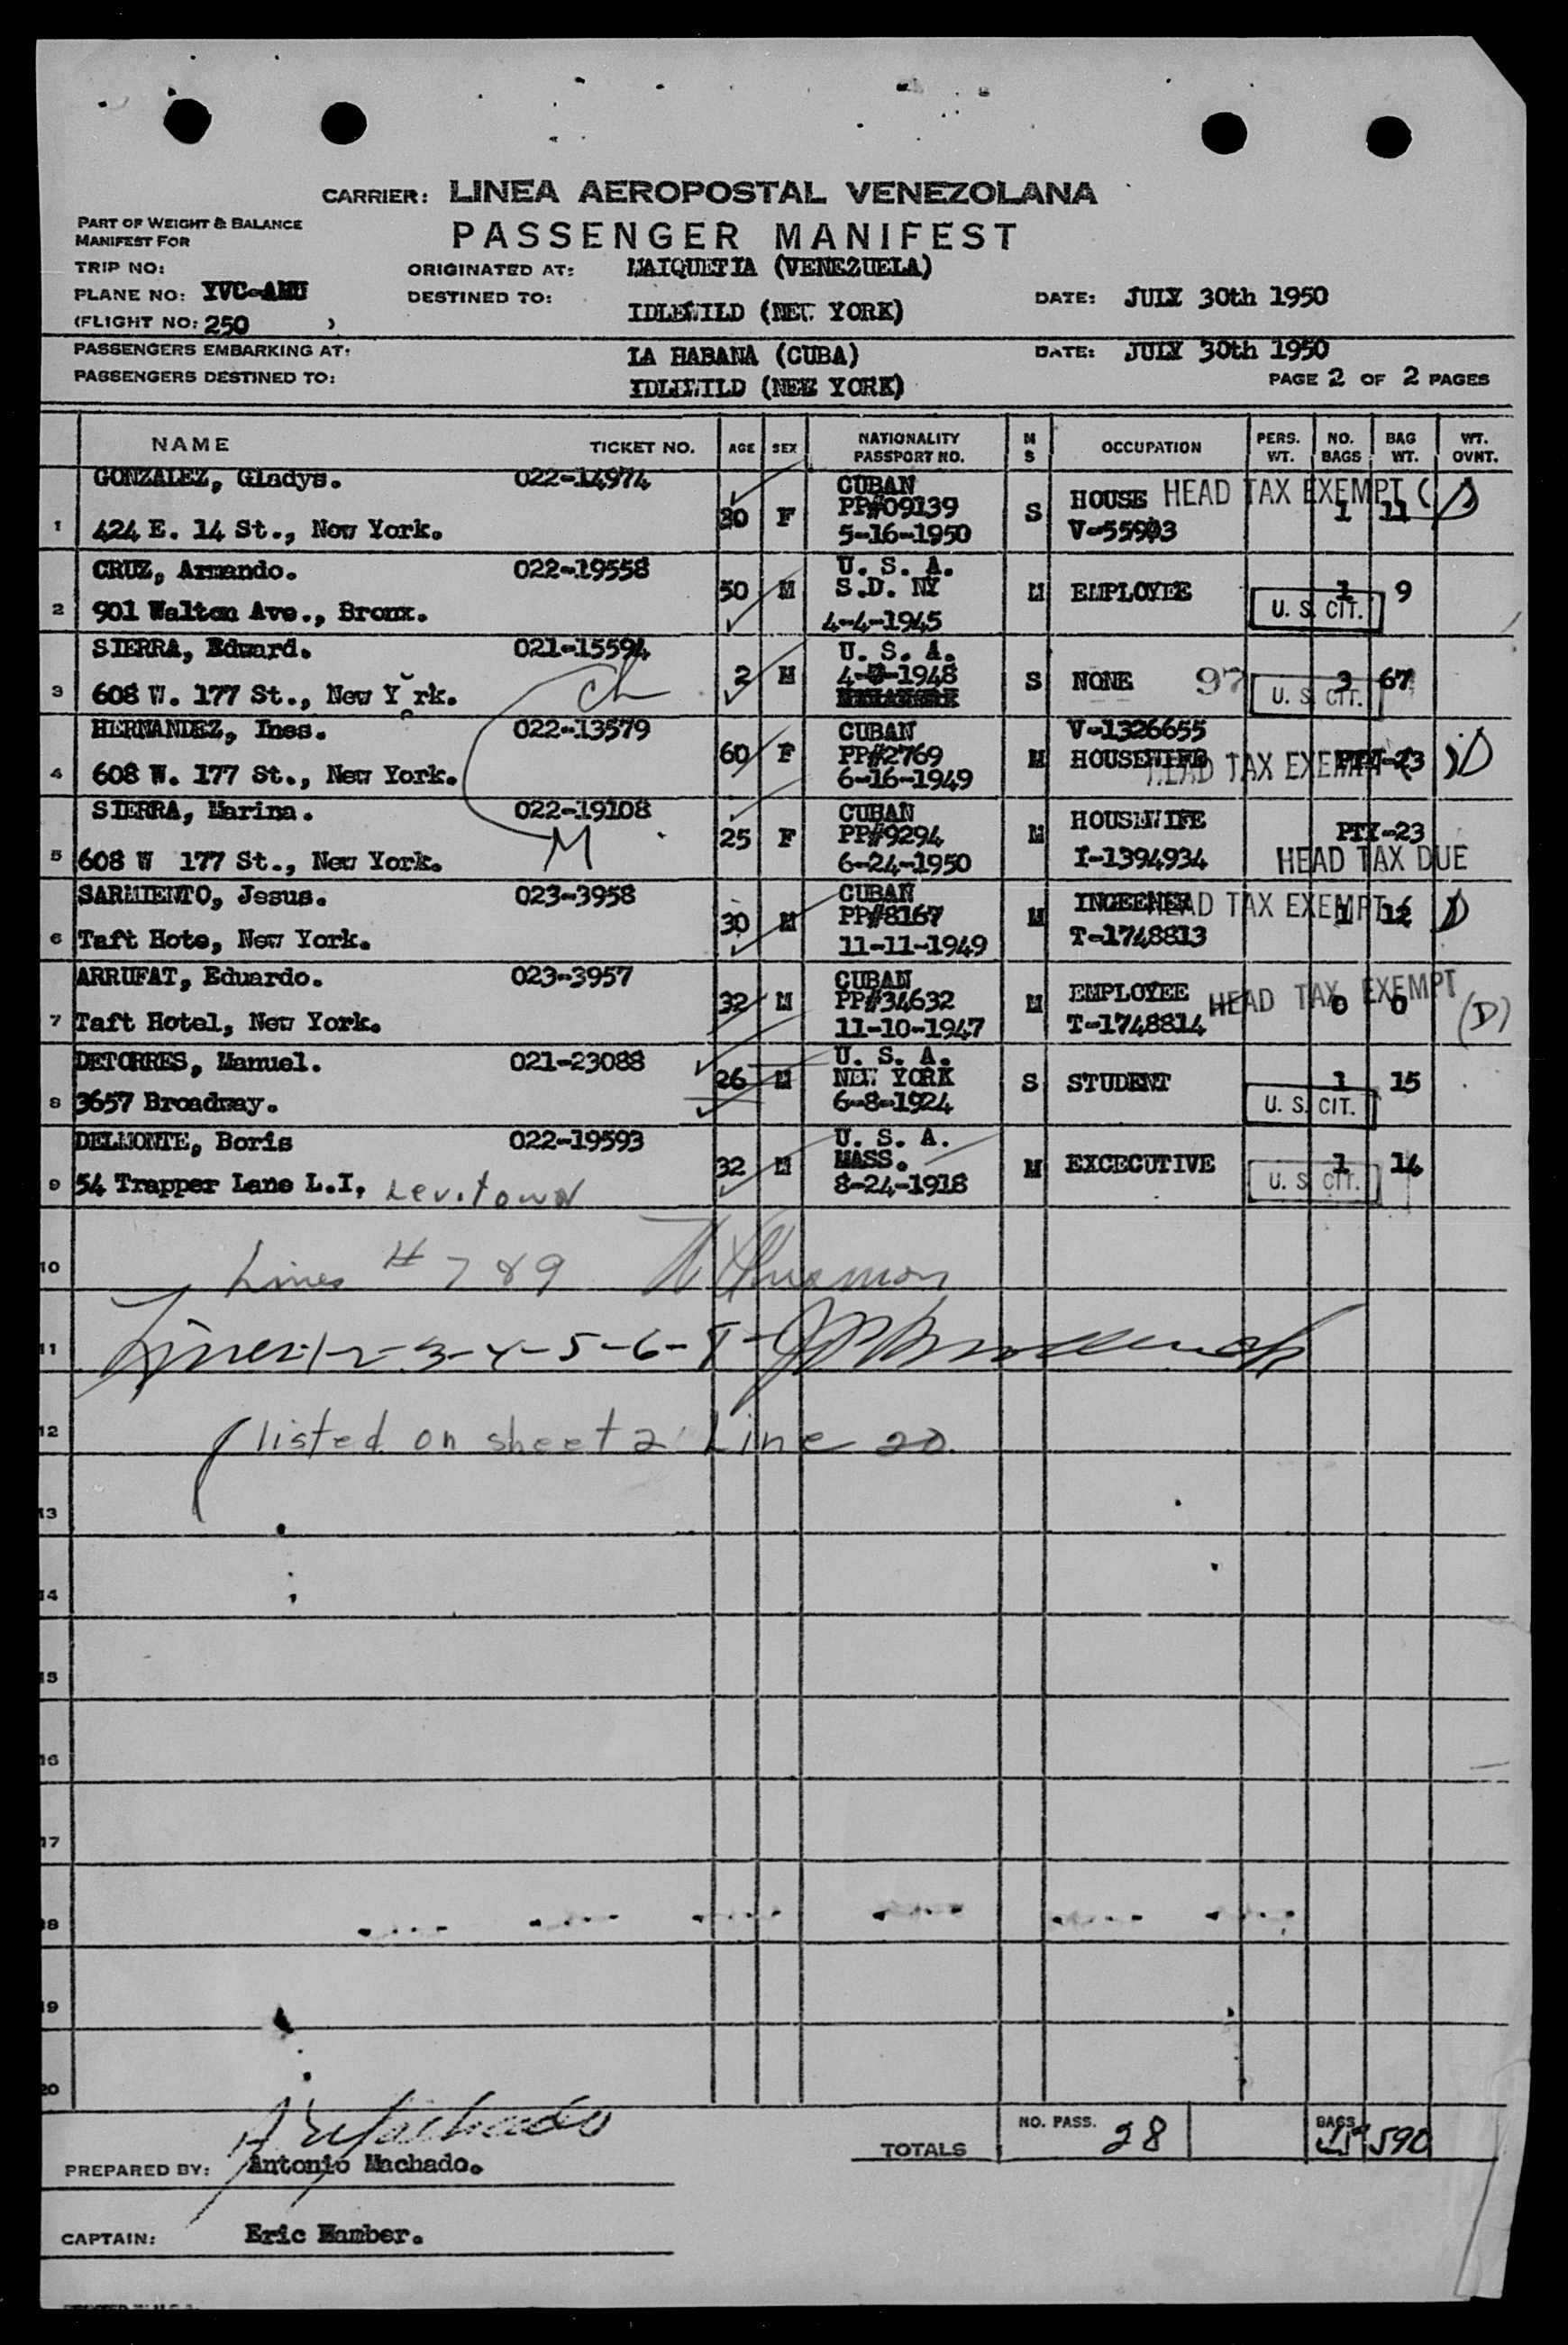 CARRIER: LINEA AEROPOSTAL VENEZOLANA
PART OF WEIGHT & BALANCE
MANIFEST FOR
PASSENGER MANIFEST
TRIP NO:
ORIGINATED AT: MAIQUETIA (VENEZUELA)
PLANE NO: YVC-AMU
DESTINED TO: IDLEWILD (NEW YORK)
DATE: JULY 30th 1950
(FLIGHT NO: 250 )
PASSENGERS EMBARKING AT: LA HABANA (CUBA) DATE: JULY 30th 1950
PASSENGERS DESTINED TO: IDLEWILD (NEW YORK)
PAGE 2 OF 2 PAGES
NAME TICKET NO. AGE SEX NATIONALITY PASSPORT NO. M S OCCUPATION PERS. WT. NO. BAGS BAG WT. WT. OVNT.
GONZALEZ, Gladys. 022-14974
CUBAN
1 30 F PP#09139 S HOUSE HEAD TAX EXEMPT ( D 1 11
424 E. 14 St., New York. 5-16-1950 V-55903
CRUZ, Armando. 022-19558 U. S. A.
2 50 M S.D. NY M EMPLOYEE 1 9
901 Walton Ave., Bronx. 4-4-1945 U. S. CIT.
SIERRA, Edward. 021-15594 U. S. A.
3 ch 2 M 4- -1948 S NONE 97 3 67
608 W. 177 St., New York. U. S. CIT.
HERNANDEZ, Ines. 022-13579 CUBAN V-1326655
4 60 F PP#2769 M HOUSEWIFE HEAD TAX EXEMPT PTY-23 D
608 W. 177 St., New York. 6-16-1949
SIERRA, Marina. 022-19108 CUBAN HOUSEWIFE
5 M 25 F PP#9294 M PTY-23
608 W 177 St., New York. 6-24-1950 I-1394934 HEAD TAX DUE
SARMIENTO, Jesus. 023-3958 CUBAN INGEENER HEAD TAX EXEMPT
6 30 M PP#8167 M 1 12 D
Taft Hote, New York. 11-11-1949 T-1748813
ARRUFAT, Eduardo. 023-3957 CUBAN EMPLOYEE HEAD TAX EXEMPT
7 32 M PP#34632 M 0 0 (D)
Taft Hotel, New York. 11-10-1947 T-1748814
DETORRES, Manuel. 021-23088 U. S. A.
8 26 M NEW YORK S STUDENT 1 15
3657 Broadway. 6-8-1924 U. S. CIT.
DELMONTE, Boris 022-19593 U. S. A.
9 32 M MASS. M EXCECUTIVE 1 14
54 Trapper Lane L.I, Levitown 8-24-1918 U. S. CIT.
10 Lines # 7 89
11 Lines 1-2-3-4-5-6-8-
12 listed on sheet 2 Line 20
13
14
15
16
17
18
19
20
TOTALS NO. PASS. 28 BAGS 590
PREPARED BY: Antonio Machado.
CAPTAIN: Eric Hamber.